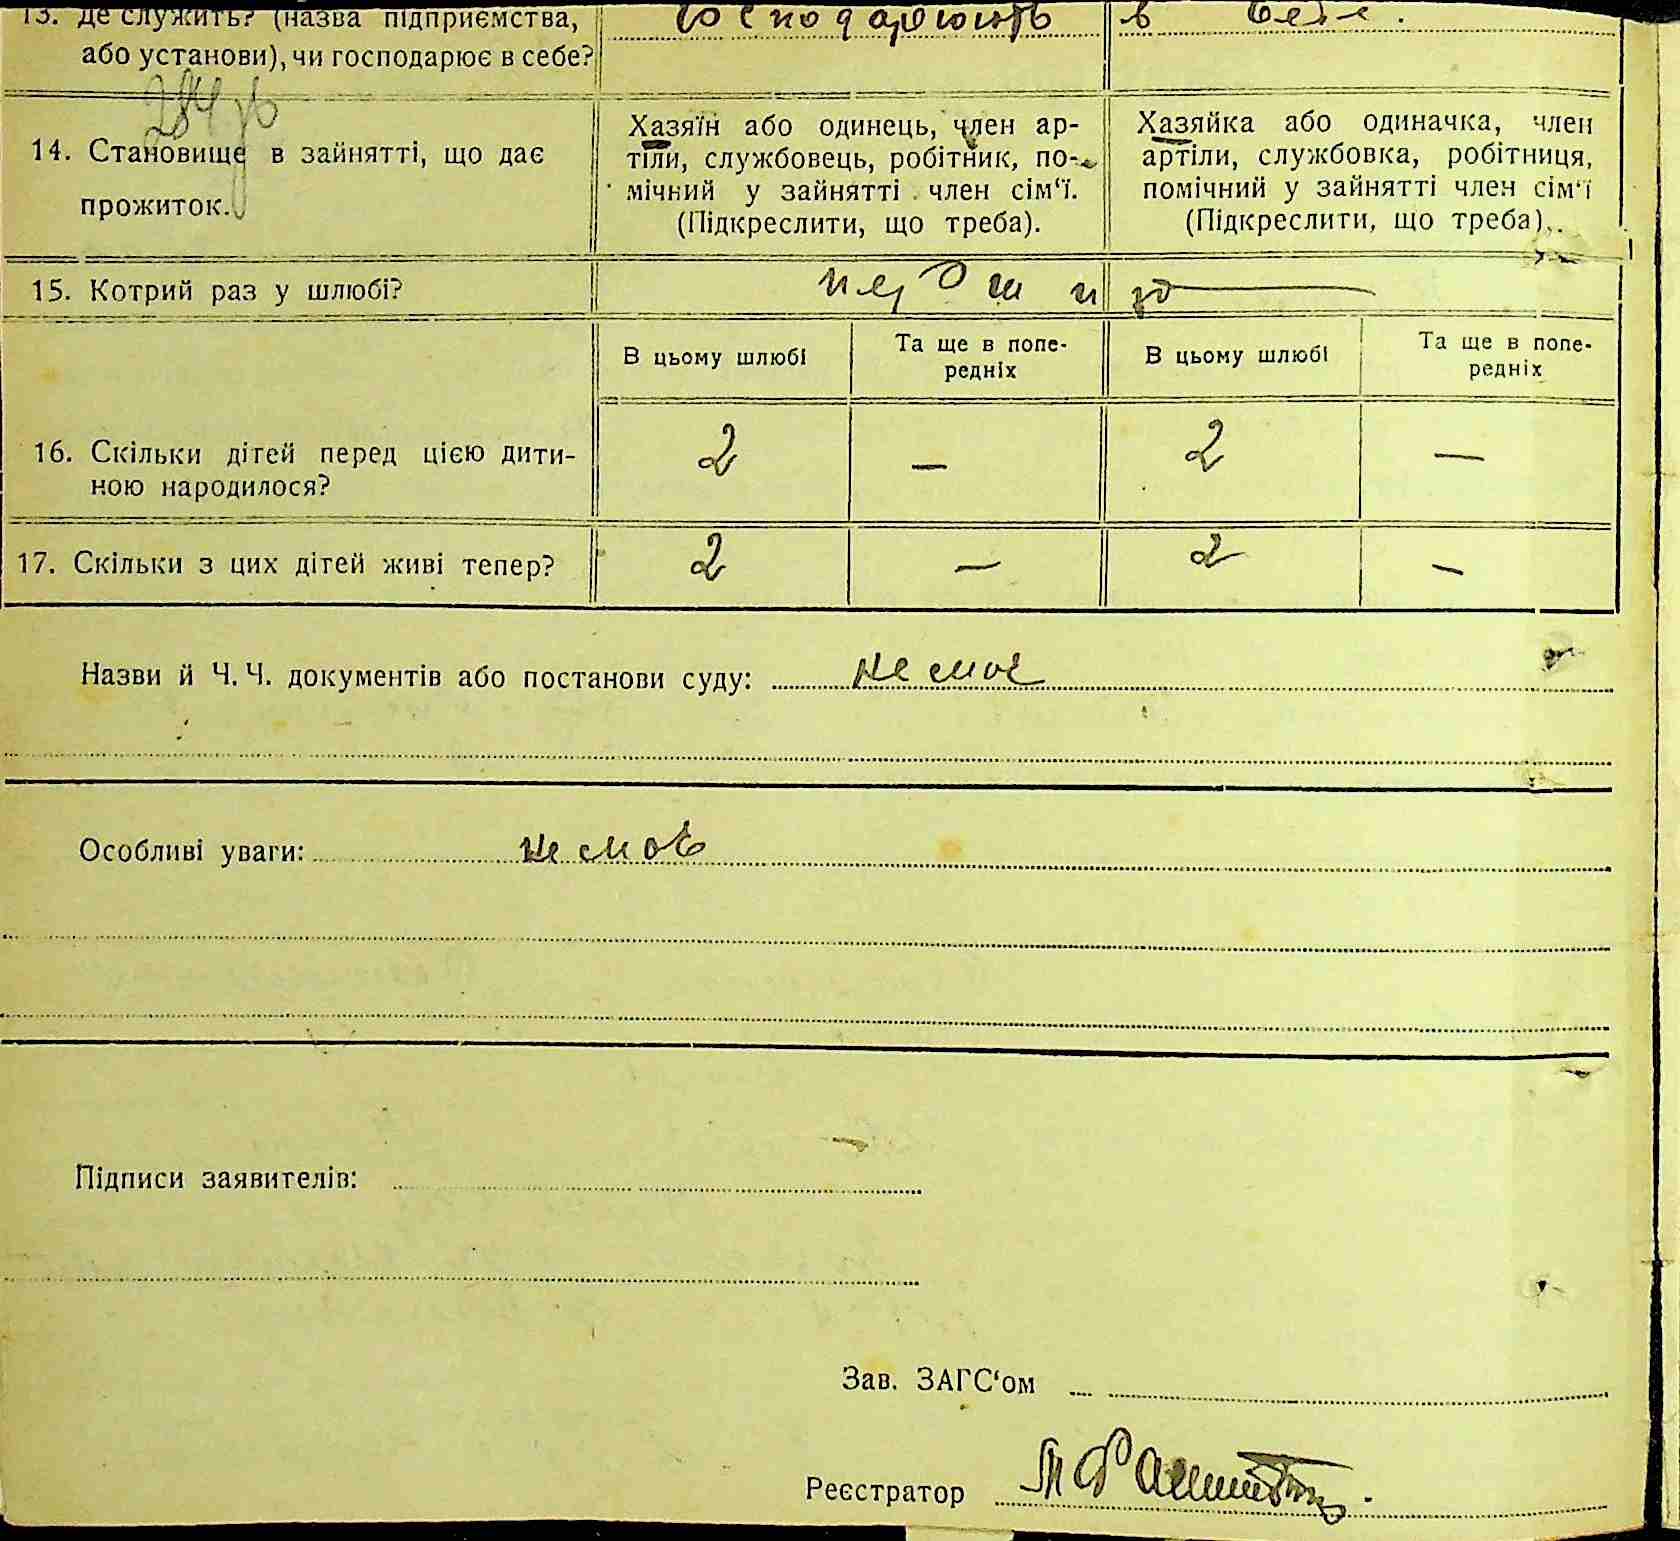 13. Де служить? (назва підприємства,
або установи), чи господарює в себе?
Господарюють в себе.
14. Становище в зайнятті, що дає
прожиток.
Хазяїн або одинець, член ар-
тіли, службовець, робітник, по-
мічний у зайнятті член сім‘ї.
(Підкреслити, що треба).
Хазяйка або одиначка, член
артіли, службовка, робітниця,
помічний у зайнятті член сім‘ї
(Підкреслити, що треба).
15. Котрий раз у шлюбі?
В цьому шлюбі
Та ще в попе-
редніх
В цьому шлюбі
Та ще в попе-
редніх
16. Скільки дітей перед цією дити-
ною народилося?
2 — 2 —
17. Скільки з цих дітей живі тепер?
2 — 2 —
Назви й Ч. Ч. документів або постанови суду: немає
Особливі уваги: немає
Підписи заявителів:
Зав. ЗАГС‘ом
Реєстратор